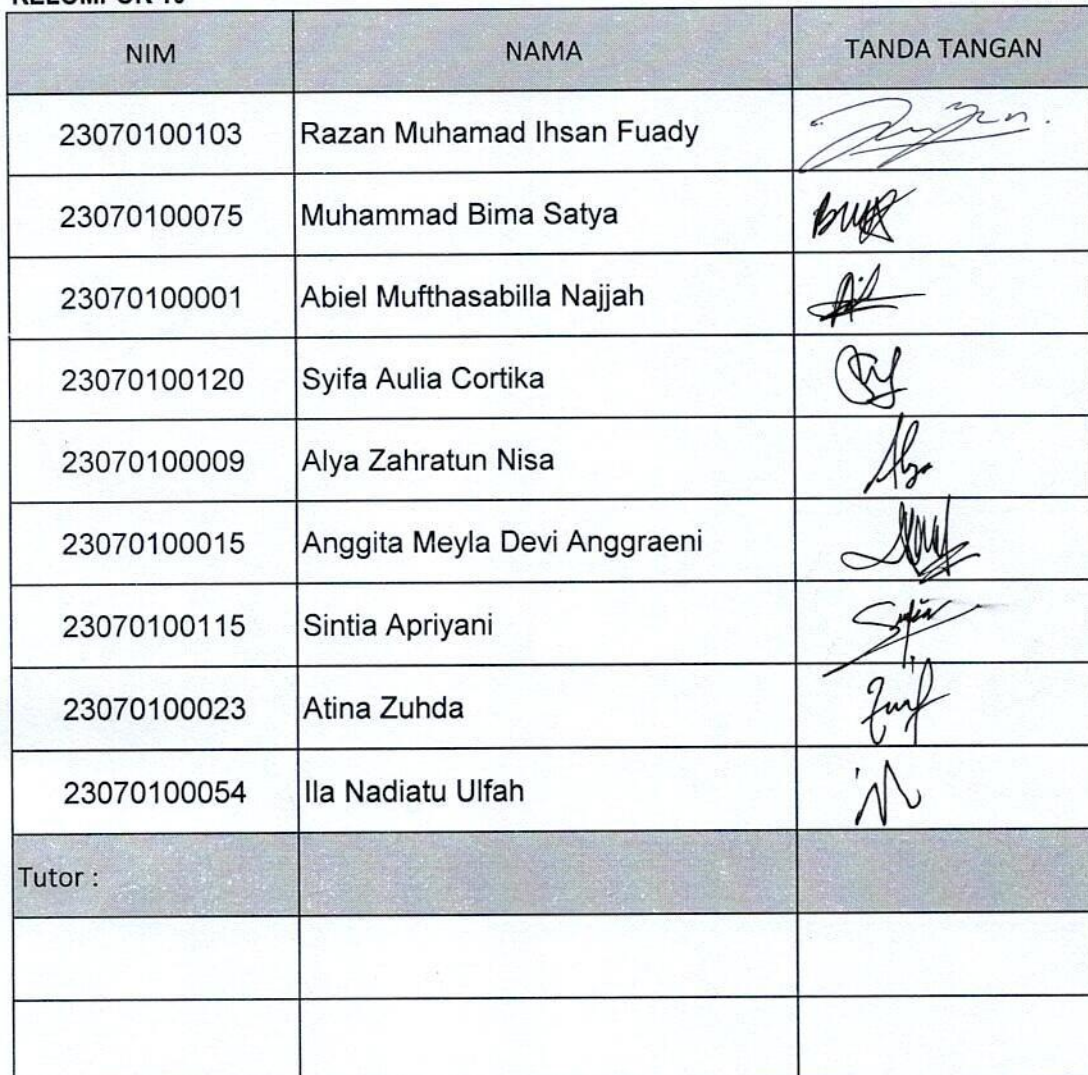 NIM NAMA TANDA TANGAN
23070100103 Razan Muhamad Ihsan Fuady
23070100075 Muhammad Bima Satya
23070100001 Abiel Mufthasabilla Najjah
23070100120 Syifa Aulia Cortika
23070100009 Alya Zahratun Nisa
23070100015 Anggita Meyla Devi Anggraeni
23070100115 Sintia Apriyani
23070100023 Atina Zuhda
23070100054 Ila Nadiatu Ulfah
Tutor :